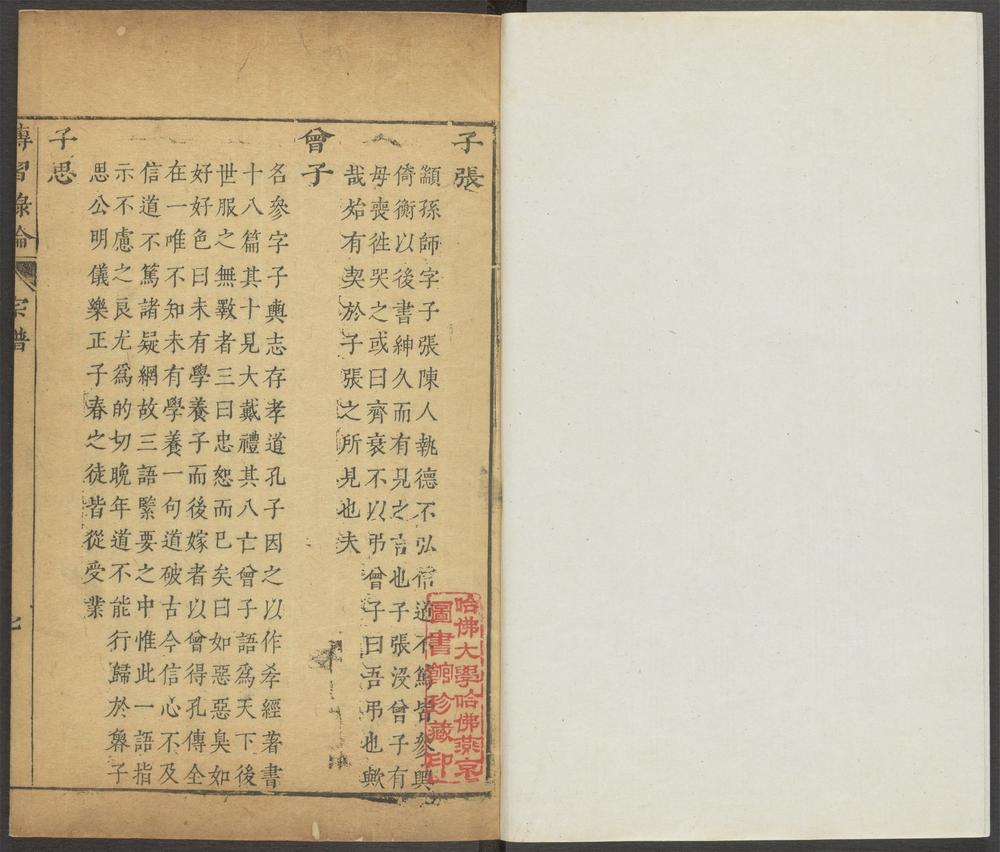 子張
顓孫師字子張陳人執德不弘信道不篤皆參輿
倚衡以後書紳久而有見之言也子張沒曾子有
母喪徃哭之或曰齊衰不以弔曾子曰吾弔也歟
哉始有契於子張之所見也夫
曾子
名參字子輿志存孝道孔子因之以作孝經著書
十八篇其十見大戴禮其八亡曾子語爲天下後
世服之無斁者三曰忠恕而已矣曰如惡惡臭如
好好色曰未有學養子而後嫁者以曾得孔傳全
在一唯不知未有學養一句道破古今信心不及
信道不篤諸疑網故三語緊要之中惟此一語指
示不慮之良尤爲的切晩年道不能行歸於
思公明儀樂正子春之徒皆從受業
子思
傳習錄論
宗譜
七
哈佛大學哈佛燕京
圖書館珍藏印